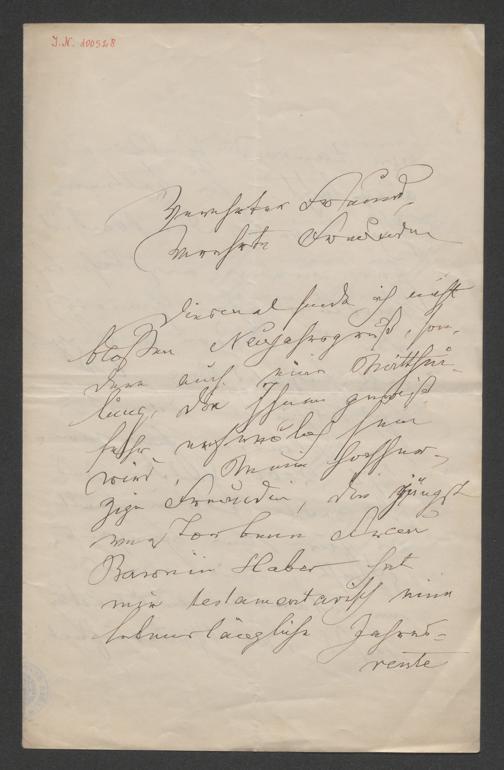 I.N. 200528
Verehrter Freund,
Verehrte Freundin
Diesmal sende ich nicht
bloßen Neujahrsgruß, son-
dern auch eine Mitthei-
lung, die Ihnen gewiß
sehr erfreulich sein
wird. Meine hochher-
zige Freundin, die jüngst
verstorbene Frau
Baronin Haber hat
mir testamentarisch eine
lebenslängliche Jahres-
rente